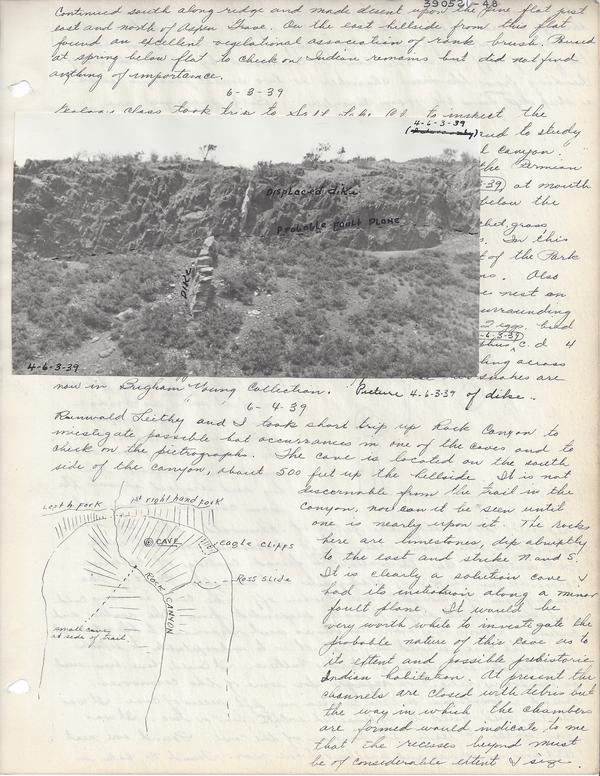 390521-48
Continued south along ridge and made decent upon the pine flat just
east and north of Aspen Grove. On the east hillside from this flat
found an excellent vegetational association of rank brush. Paused
at spring below flat to check on Indian remains but did not find
anything of importance.
6-3-39
class took trip to to inspect the
4-6-3-39
to study
canyon."
the Permian
3-39) at mouth
below the
grass
In this
of the Park
Also
nest on
surrounding
2 eggs. had
-6-3-39
c. d 4
across
snakes are
Displaced dike
Probable fault plane
Dike
4-6-3-39
now in Brigham Young Collection. Picture 4-6-3-39 of dike.
6-4-39
and I took short trip up Rock Canyon to
investigate possible bat occurrances in one of the caves and to
check on the pictrographs. The cave is located on the south
side of the canyon, about 500 feet up the hillside. It is not
discernable from the trail in the
canyon, nor can it be seen until
one is nearly upon it. The rocks
here are limestones, dip abruptly
to the east and strike N and S.
It is clearly a solution cave &
had its institution along a minor
fault plane. It would be
very worth while to investigate the
probable nature of this cave as to
its extent and possible prehistoric
Indian habitation. At present the
channels are closed with debris but
the way in which the chambers
are formed would indicate to me
that the recesses beyond must
be of considerable extent & size.
Left h fork
1st right hand fork
Cave
Eagle Cliffs
Ross Slide
Rock Canyon
small cave
at side of trail